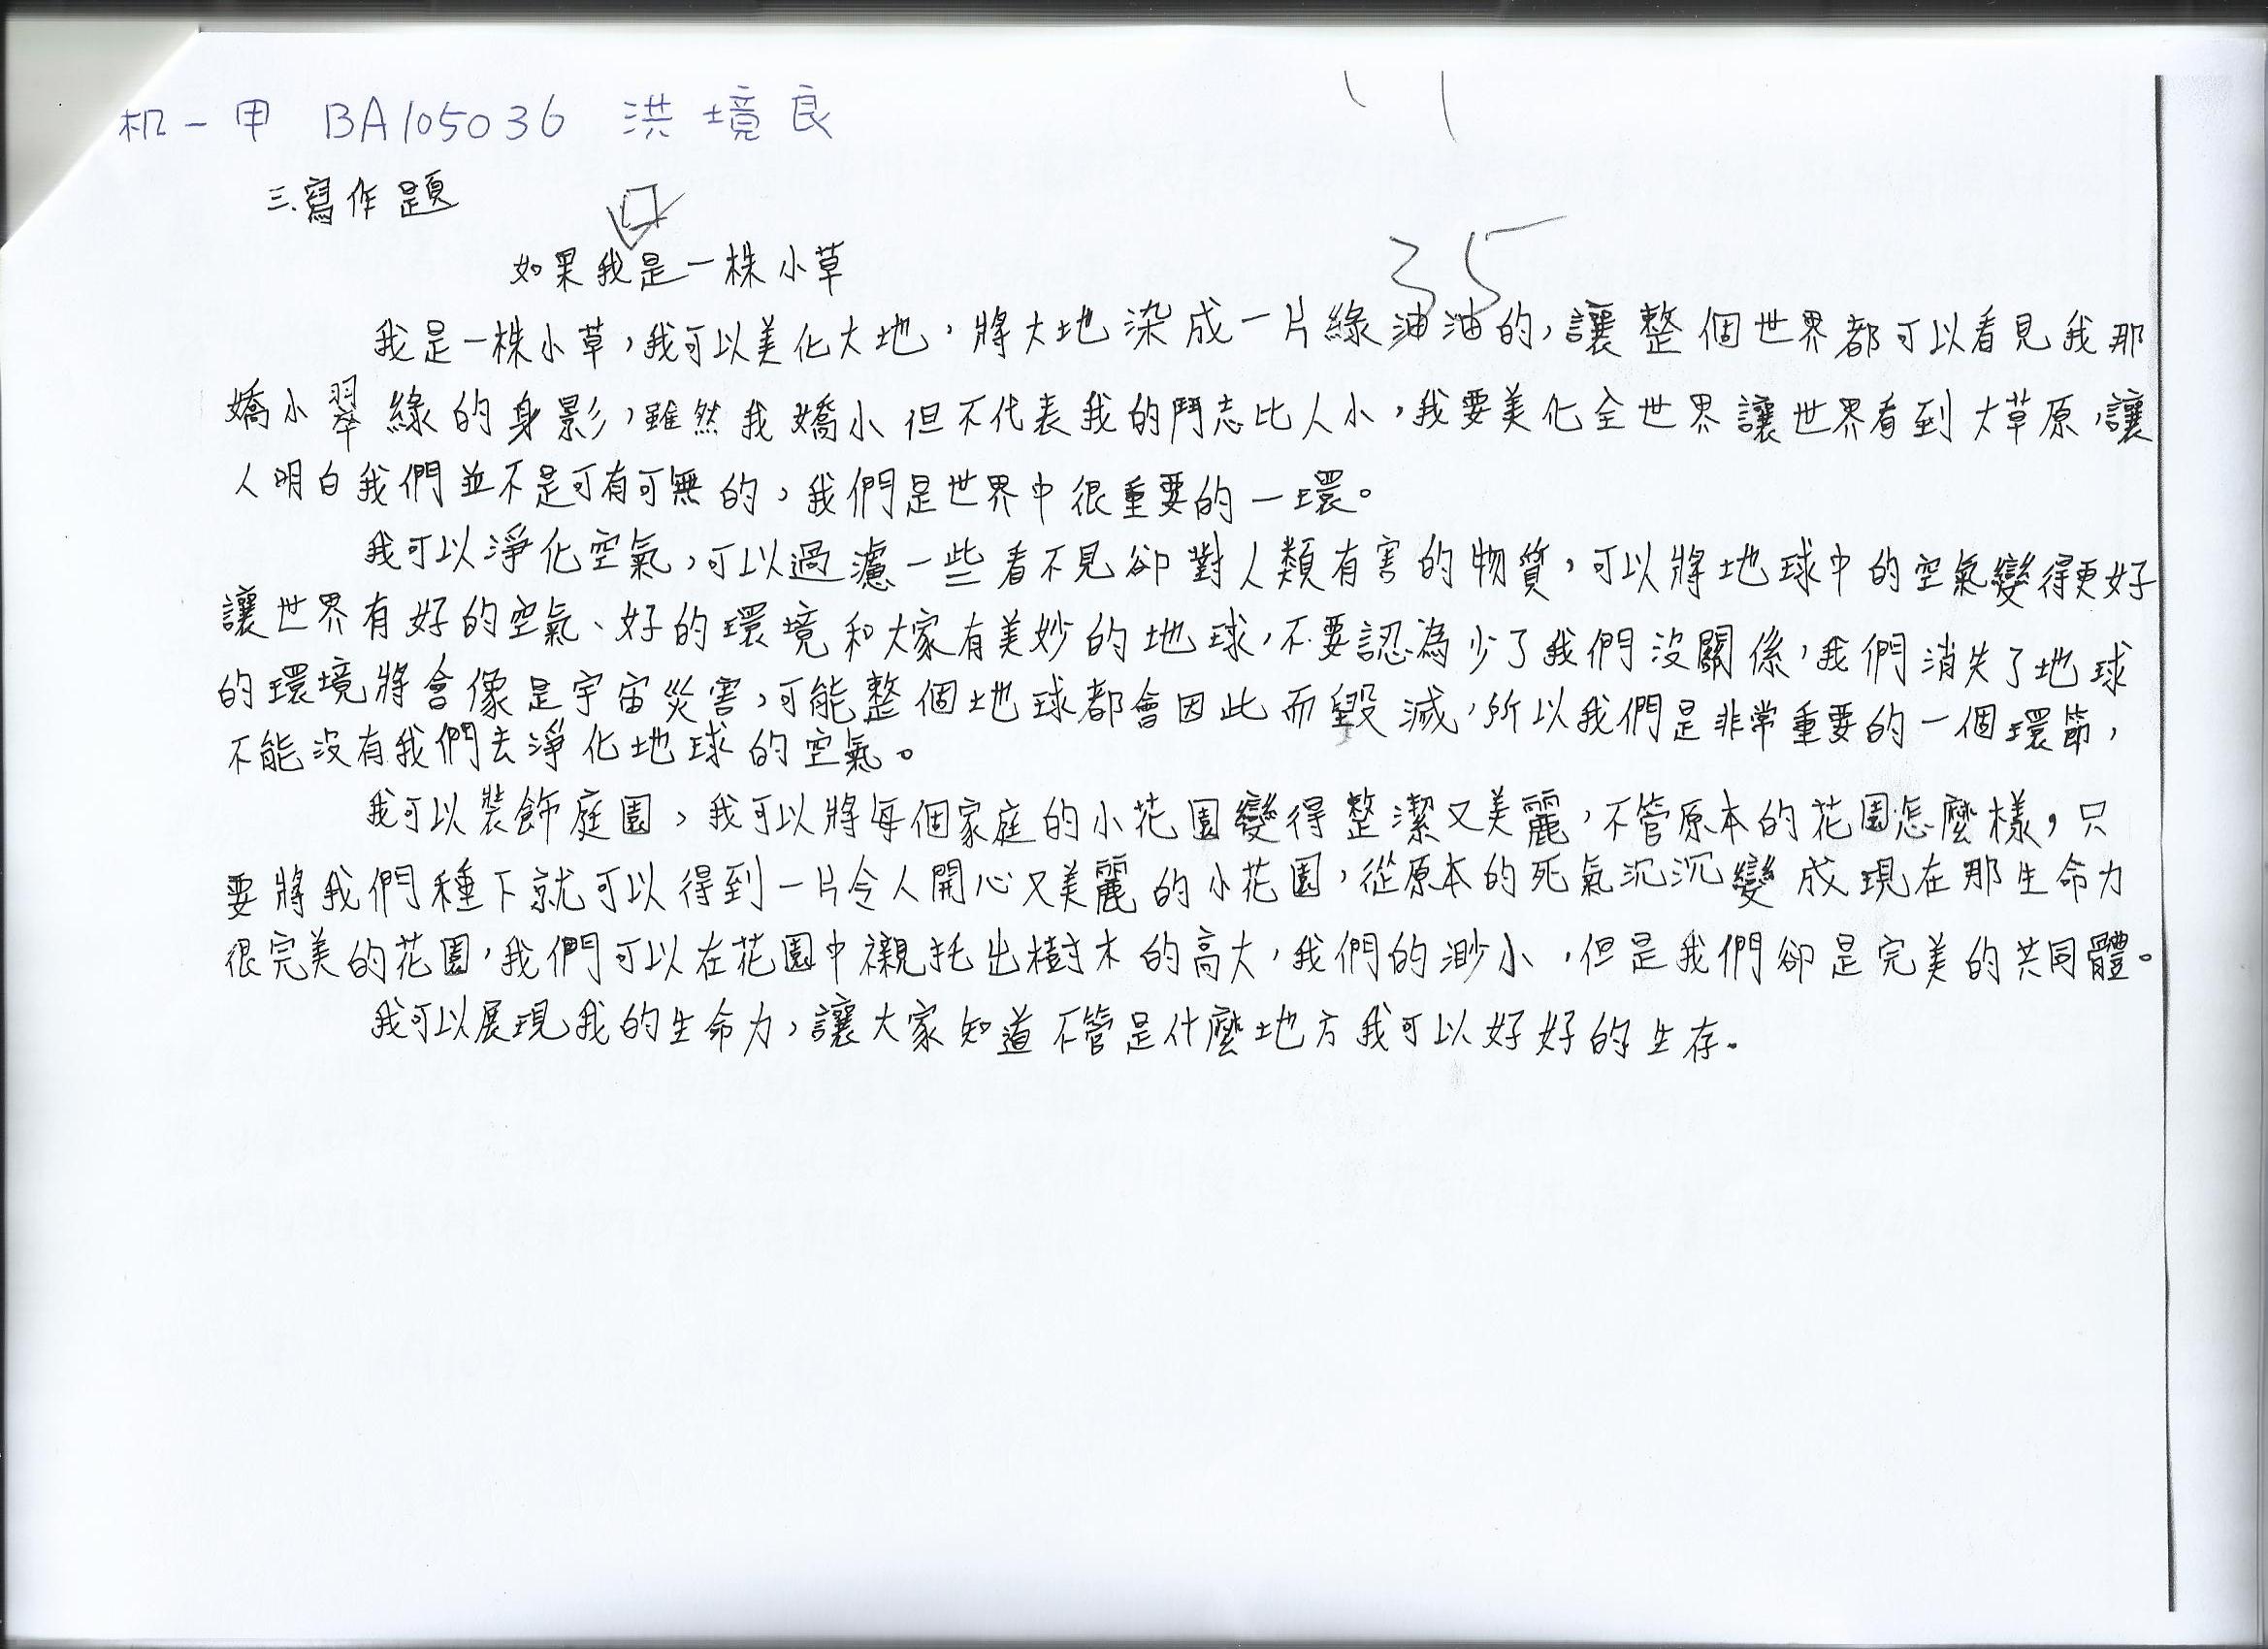 机一甲 BA105036 洪境良
三、寫作題
如果我是一株小草
35
我是一株小草，我可以美化大地，將大地染成一片綠油油的，讓整個世界都可以看見我那
嬌小翠綠的身影，雖然我嬌小但不代表我的鬥志比人小，我要美化全世界讓世界看到大草原，讓
人明白我們並不是可有可無的，我們是世界中很重要的一環。
我可以淨化空氣，可以過濾一些看不見卻對人類有害的物質，可以將地球中的空氣變得更好
讓世界有好的空氣、好的環境和大家有美妙的地球，不要認為少了我們沒關係，我們消失了地球
的環境將會像是宇宙災害，可能整個地球都會因此而毀滅，所以我們是非常重要的一個環節，
不能沒有我們去淨化地球的空氣。
我可以裝飾庭園，我可以將每個家庭的小花園變得整潔又美麗，不管原本的花園怎麼樣，只
要將我們種下就可以得到一片令人開心又美麗的小花園，從原本的死氣沉沉變成現在那生命力
很完美的花園，我們可以在花園中襯托出樹木的高大，我們的渺小，但是我們卻是完美的共同體。
我可以展現我的生命力，讓大家知道不管是什麼地方我可以好好的生存。